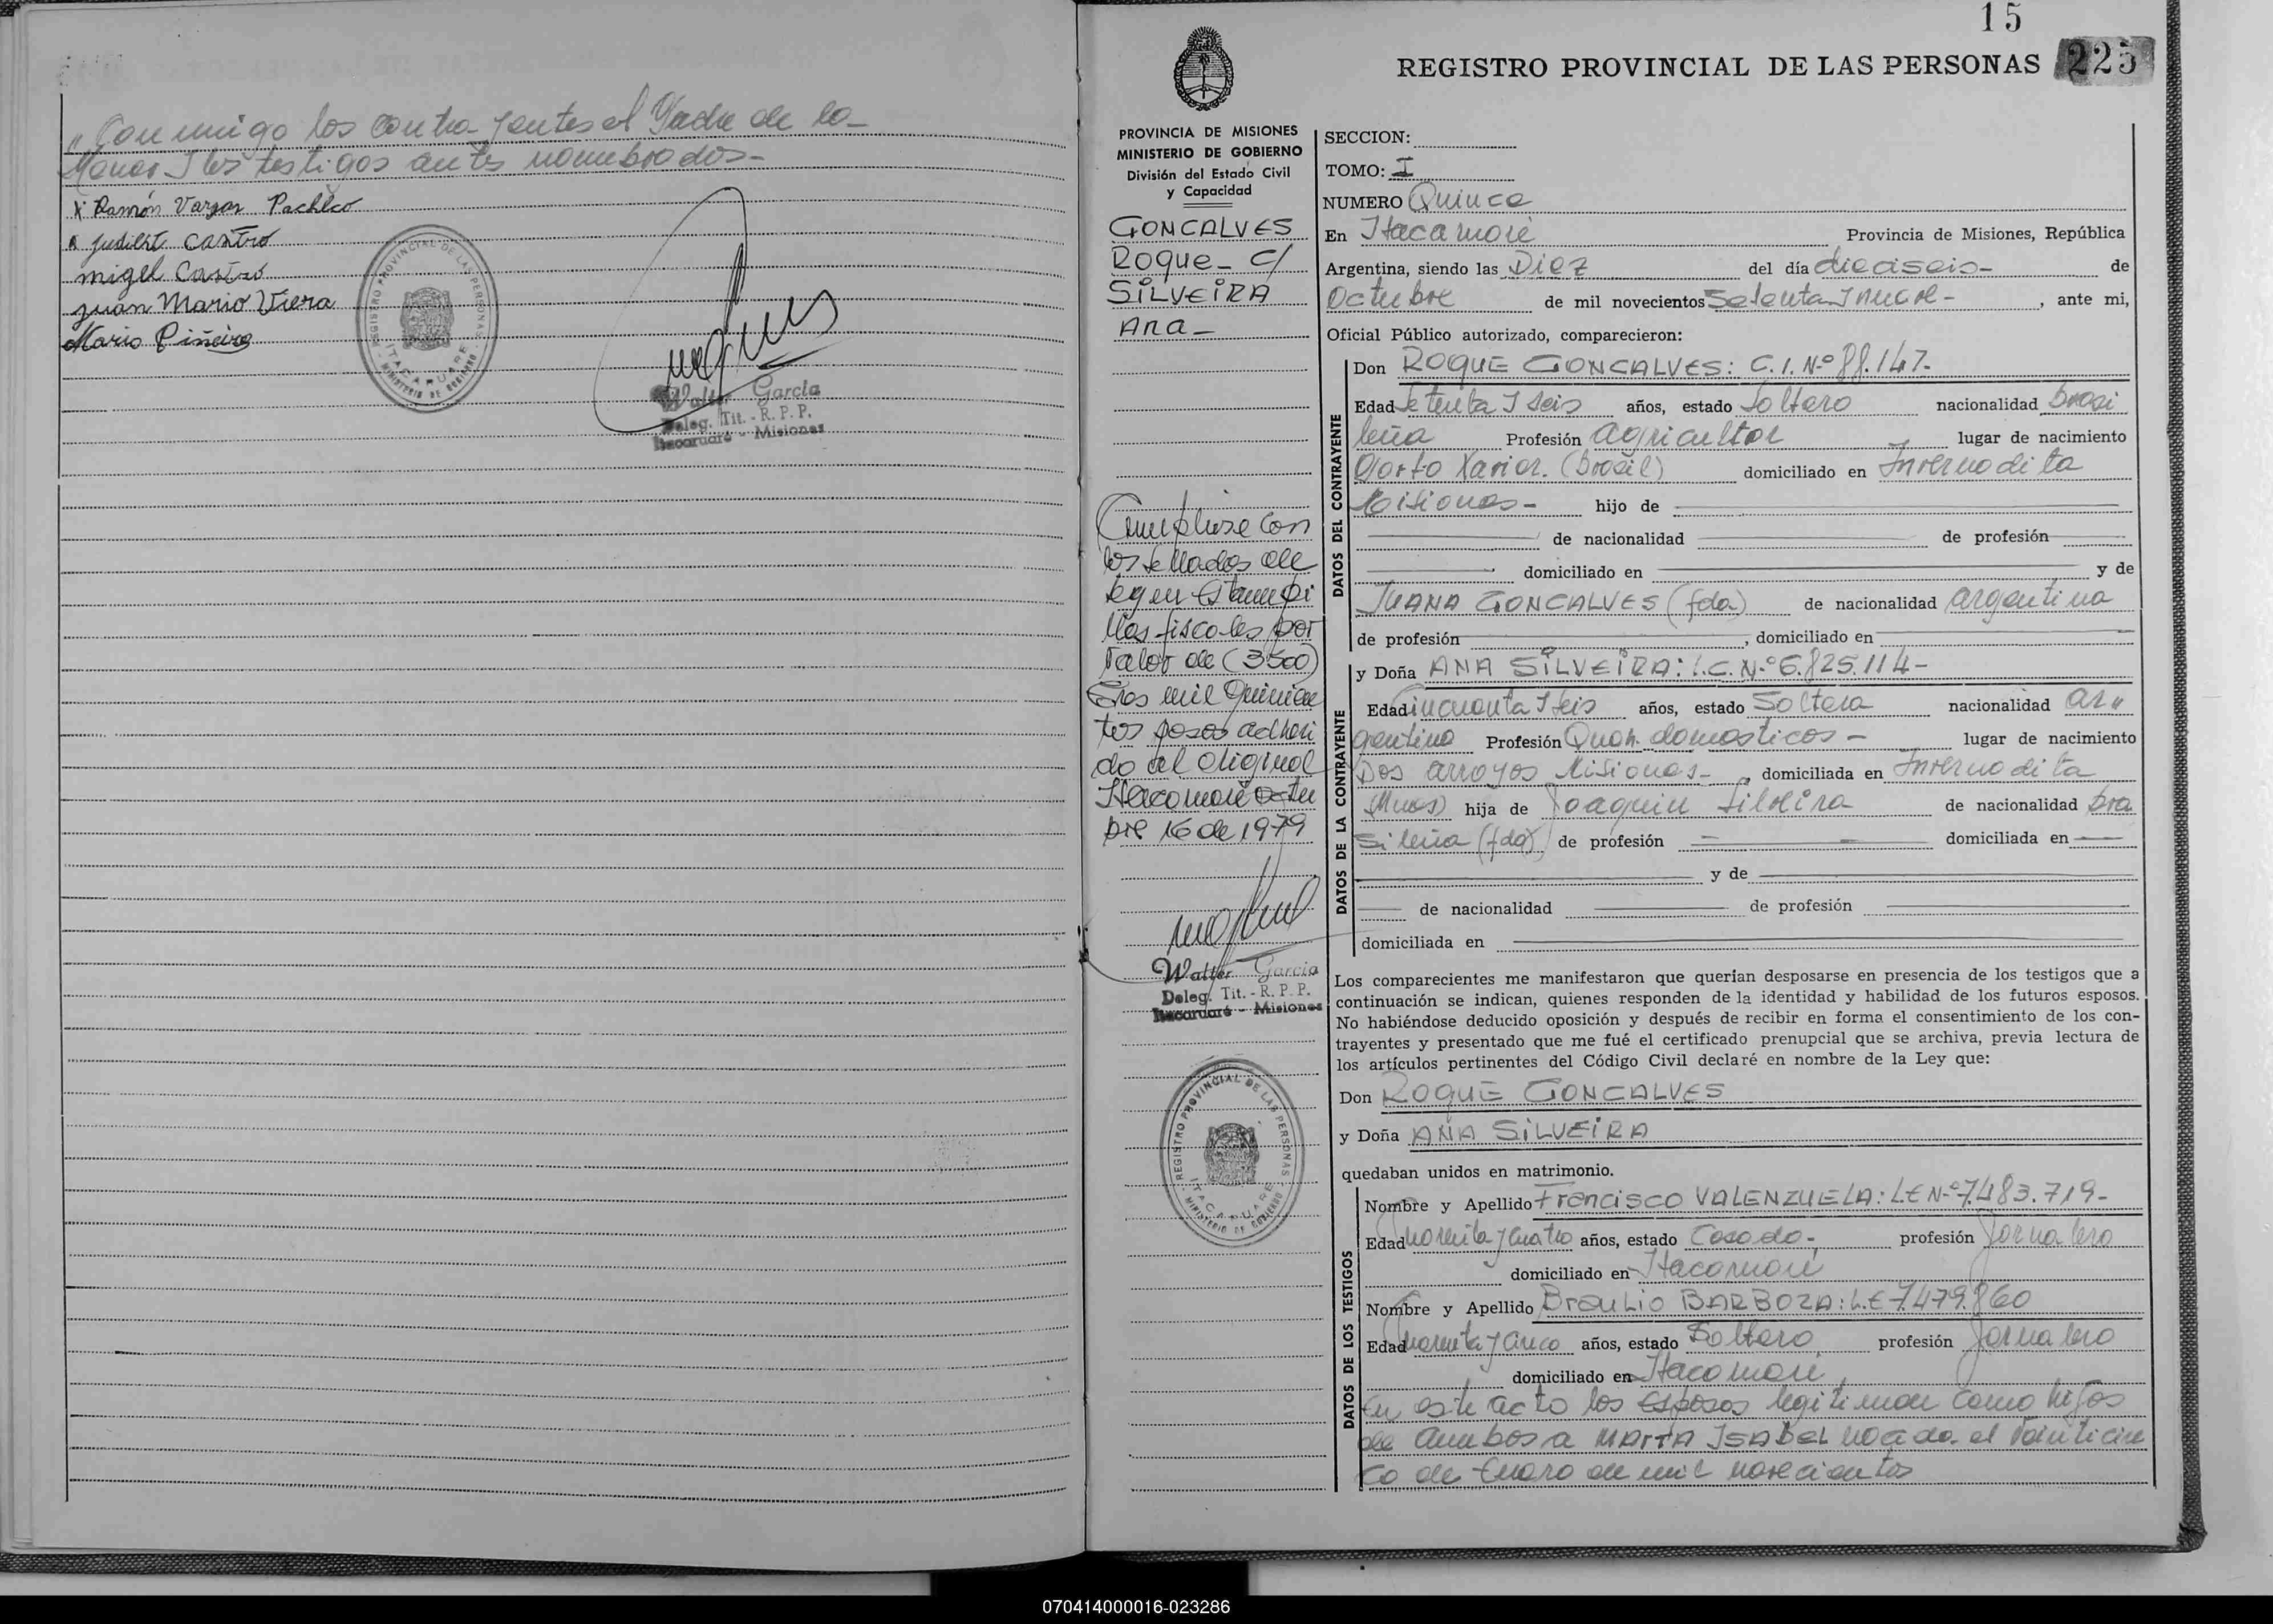 „ Conmigo los contrayentes el Padre de la
Menor y los testigos antes nombrados-
x Ramón Vargas Pacheco
Judith Castro
migel Castro
juan Mario Viera
Mario Piñeiro
REGISTRO PROVINCIAL DE LAS PERSONAS
ITACARUARE
MINISTERIO DE GOBIERNO
Walter Garcia
Deleg. Tit. - R. P. P.
Itacaruaré - Misiones
15
REGISTRO PROVINCIAL DE LAS PERSONAS 225
PROVINCIA DE MISIONES
MINISTERIO DE GOBIERNO
División del Estado Civil
y Capacidad
GONCALVES
Roque- c/
SILVEIRA
Ana-
Cumplese con
los sellados de
ley en Estampi
llas fiscales por
valor de (3500)
Tres mil Quinien
tos pesos adheri
do al original
Itacaruaré octu
bre 16 de 1979
Walter Garcia
Deleg. Tit. - R. P. P.
Itacaruaré - Misiones
REGISTRO PROVINCIAL DE LAS PERSONAS
ITACARUARE
MINISTERIO DE GOBIERNO
SECCION:
TOMO: I
NUMERO Quince
En Itacaruaré Provincia de Misiones, República
Argentina, siendo las Diez del día dieciseis- de
Octubre de mil novecientos Setenta y nueve- , ante mi,
Oficial Público autorizado, comparecieron:
DATOS DEL CONTRAYENTE
Don ROQUE GONCALVES: C.I. Nº 88.147-
Edad Setenta y seis años, estado Soltero nacionalidad brasi
leña Profesión agricultor lugar de nacimiento
Porto Xavier. (Brasil) domiciliado en Invernadita
Misiones- hijo de
de nacionalidad de profesión
domiciliado en y de
JUANA GONCALVES (fda) de nacionalidad argentina
de profesión , domiciliado en
DATOS DE LA CONTRAYENTE
y Doña ANA SILVEIRA: L.C. Nº 6.825.114-
Edad Cincuenta y seis años, estado Soltera nacionalidad ar„
gentina Profesión Queh. domesticos- lugar de nacimiento
Dos arroyos Misiones- , domiciliada en Invernadita
(Mnes) hija de Joaquin Silveira de nacionalidad bra
sileña (fdo) de profesión domiciliada en
y de
de nacionalidad de profesión
domiciliada en
Los comparecientes me manifestaron que querían desposarse en presencia de los testigos que a
continuación se indican, quienes responden de la identidad y habilidad de los futuros esposos.
No habiéndose deducido oposición y después de recibir en forma el consentimiento de los con-
trayentes y presentado que me fué el certificado prenupcial que se archiva, previa lectura de
los artículos pertinentes del Código Civil declaré en nombre de la Ley que:
Don ROQUE GONCALVES
y Doña ANA SILVEIRA
quedaban unidos en matrimonio.
DATOS DE LOS TESTIGOS
Nombre y Apellido Francisco VALENZUELA: LE Nº 7.483.719-
Edad Cuarenta y Cuatro años, estado Casado- profesión Jornalero
domiciliado en Itacaruaré
Nombre y Apellido Braulio BARBOZA: L.E 7.479.860
Edad Cuarenta y cinco años, estado Soltero profesión Jornalero
domiciliado en Itacaruaré
En este acto los Esposos legitiman como hijos
de Ambos a MARTA ISABEL nacida el Veinticin
co de Enero de mil novecientos
070414000016-023286